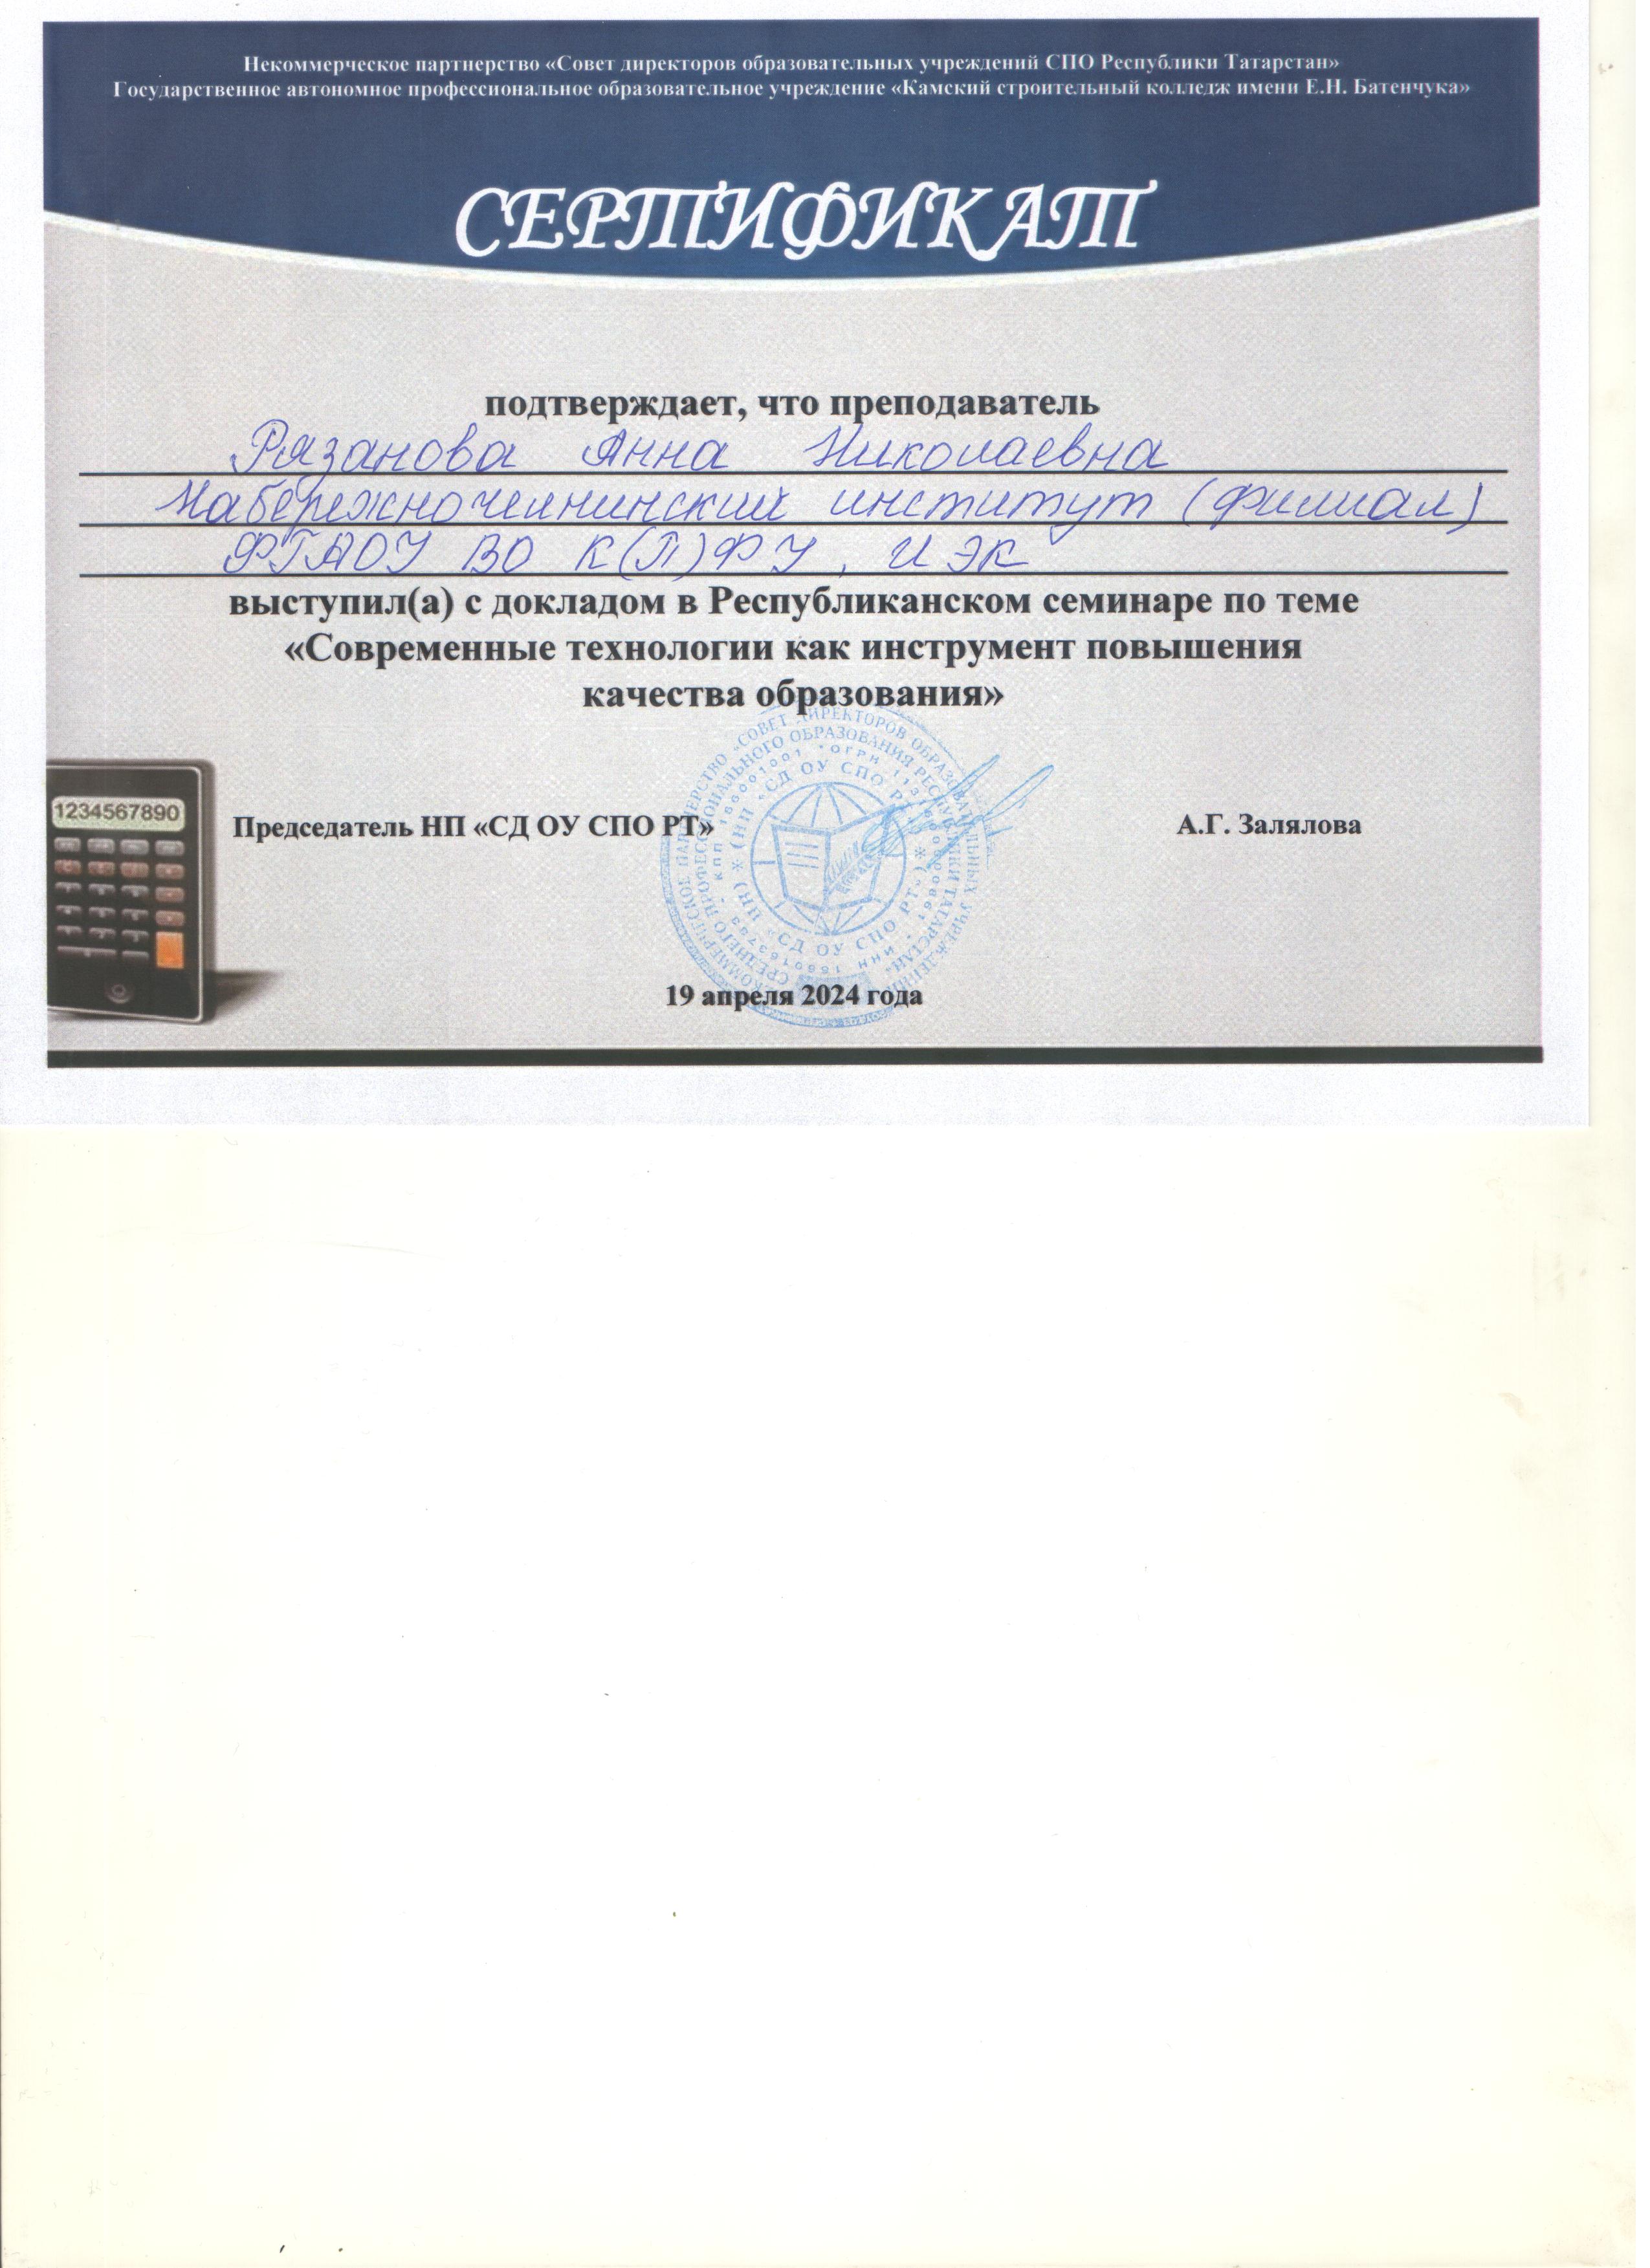 Некоммерческое партнерство «Совет директоров образовательных учреждений СПО Республики Татарстан»
Государственное автономное профессиональное образовательное учреждение «Камский строительный колледж имени Е.Н. Батенчука»
СЕРТИФИКАТ
подтверждает, что преподаватель
Рязанова Анна Николаевна
Набережночелнинский институт (филиал)
ФГАОУ ВО К(П)ФУ, ИЭК
выступил(а) с докладом в Республиканском семинаре по теме
«Современные технологии как инструмент повышения
качества образования»
1234567890
Председатель НП «СД ОУ СПО РТ»
А.Г. Залялова
(НП «СД ОУ СПО РТ»)
(НП «СД ОУ СПО РТ»)
19 апреля 2024 года